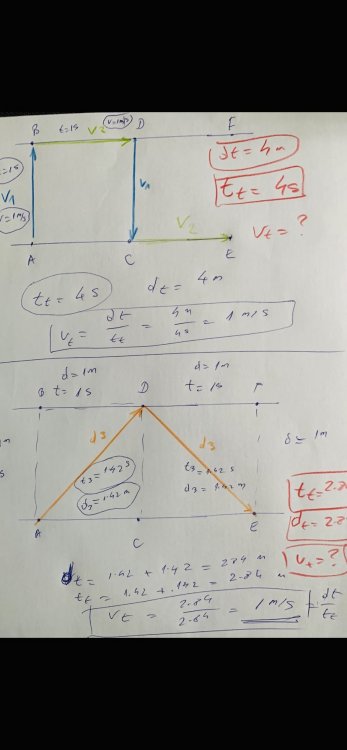 B t=1s V2 v=1m/s D F
dt = 4m
=1s
V1
v=1m/s
V1
tt = 4s
V2
Vt = ?
A C E
tt = 4s dt = 4m
Vt = dt/tt = 4m/4s = 1 m/s
d=1m d=1m
B t=1s D t=1s F
d3 d3 d= 1m
t3=1.42s t3=1.42s
d3=1.42m d3=1.42m
tt=2.8
dt=2.8
A C E
vt=?
dt = 1.42 + 1.42 = 284 m
tt = 1.42 + .142 = 2.84
Vt = 2.84/2.84 = 1m/s = dt/tt